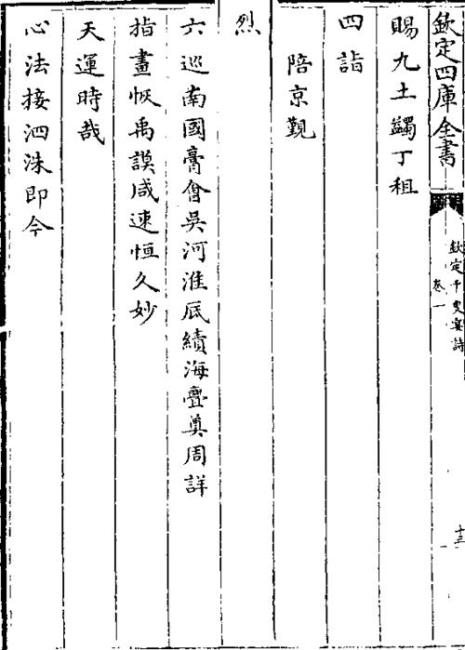 欽定四庫全書
欽定千叟宴詩
卷一
十三
賜九土蠲丁租
四詣
陪京覲
烈
六巡南國膏會吳河淮底績海疊奠周詳
指畫恢禹謨咸速恒久妙
天運時哉
心法接泗洙即今